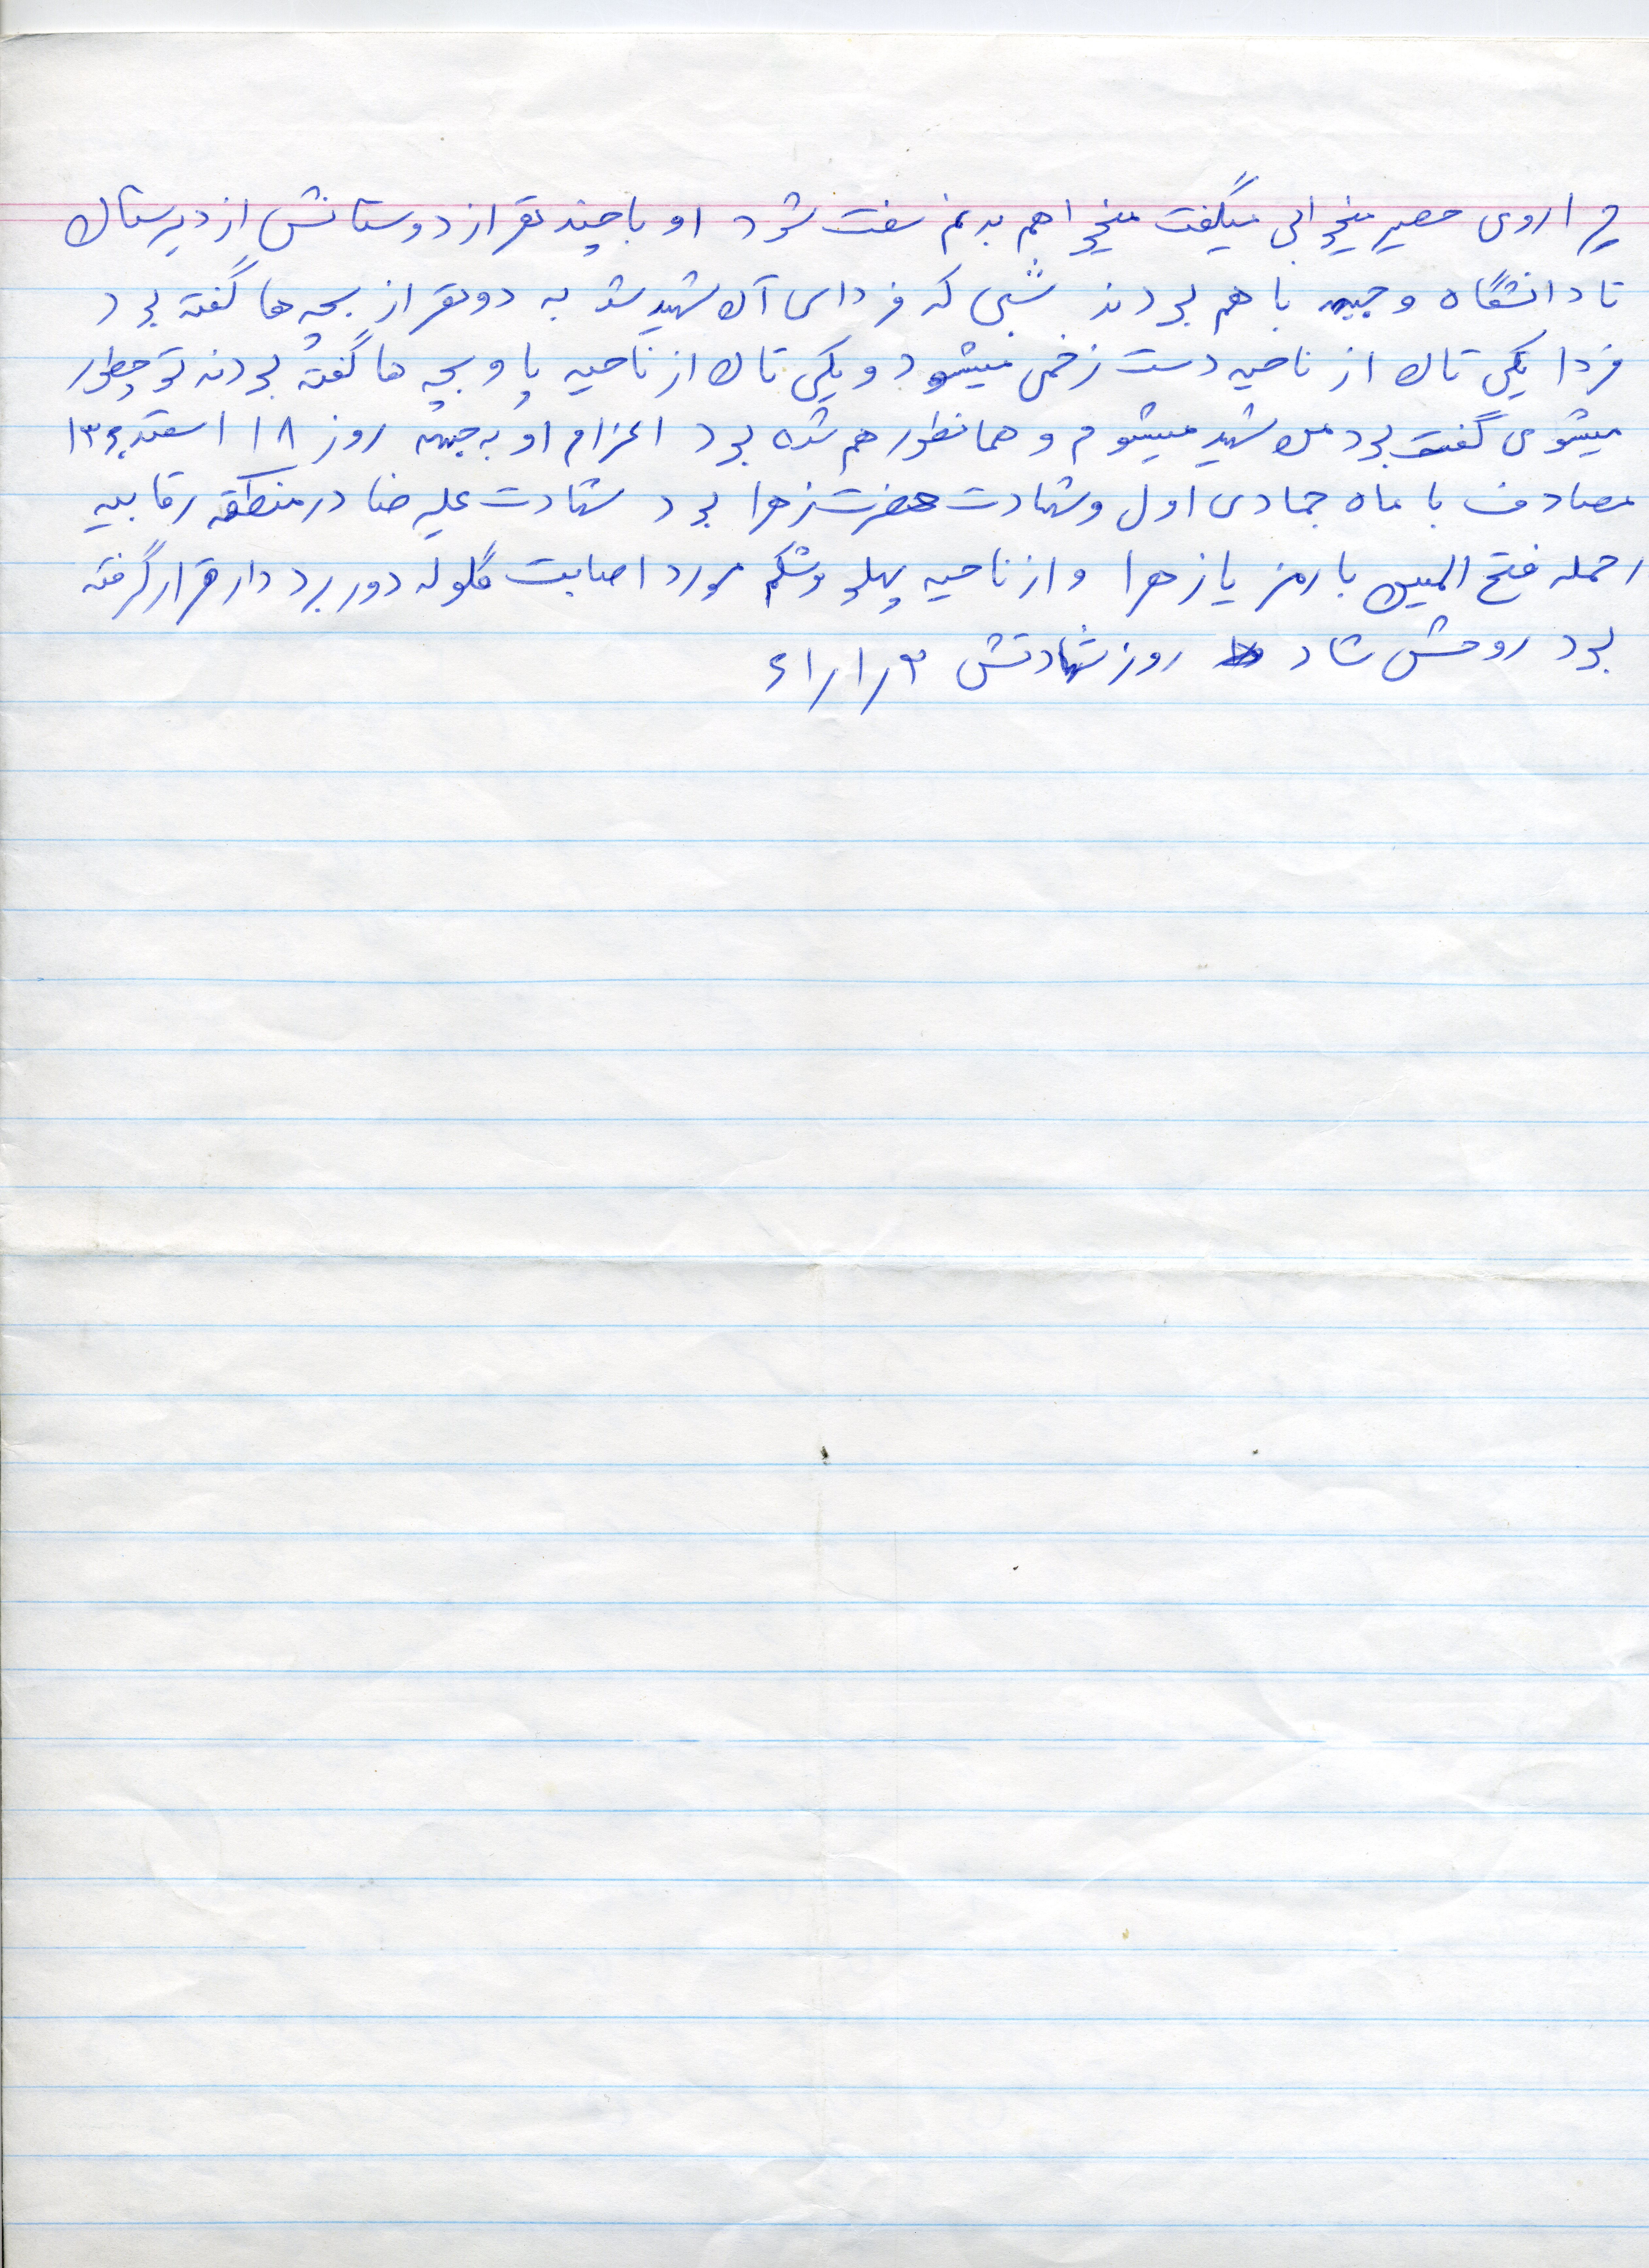 چرا روی حصیر میخوابی میگفت میخواهم بدنم سفت شود او با چند نفر از دوستانش از دبیرستان
تا دانشگاه و جبهه با هم بودند شبی که فردای آن شهید شد به دو نفر از بچه ها گفته بود
فردا یکی تان از ناحیه دست زخمی میشود و یکی تان از ناحیه پا و بچه ها گفته بودند تو چطور
میشوی گفت بود من شهید میشوم و همانطور هم شده بود اعزام او به جبهه روز ۱۸ اسفند
مصادف با ماه جمادی اول و شهادت حضرت زهرا بود شهادت علیرضا در منطقه رقابیه
حمله فتح المبین با رمز یا زهرا و از ناحیه پهلو و شکم مورد اصابت گلوله دور برد دار قرار گرفته
بود روحش شاد روز شهادتش